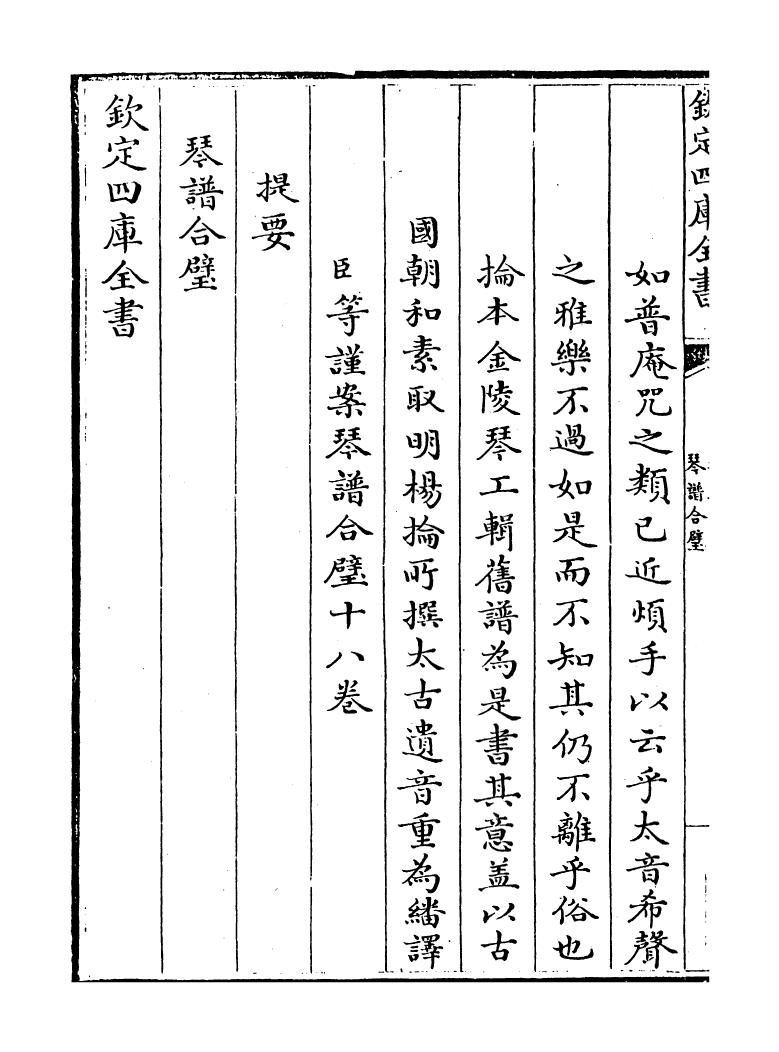 欽定四庫全書
琴譜合璧
提要
臣等謹案琴譜合璧十八卷
國朝和素取明楊掄所撰太古遺音重為繙譯
掄本金陵琴工輯舊譜為是書其意盖以古
之雅樂不過如是而不知其仍不離乎俗也
如普庵咒之類已近煩手以云乎太音希聲
欽定四庫全書
琴譜合璧